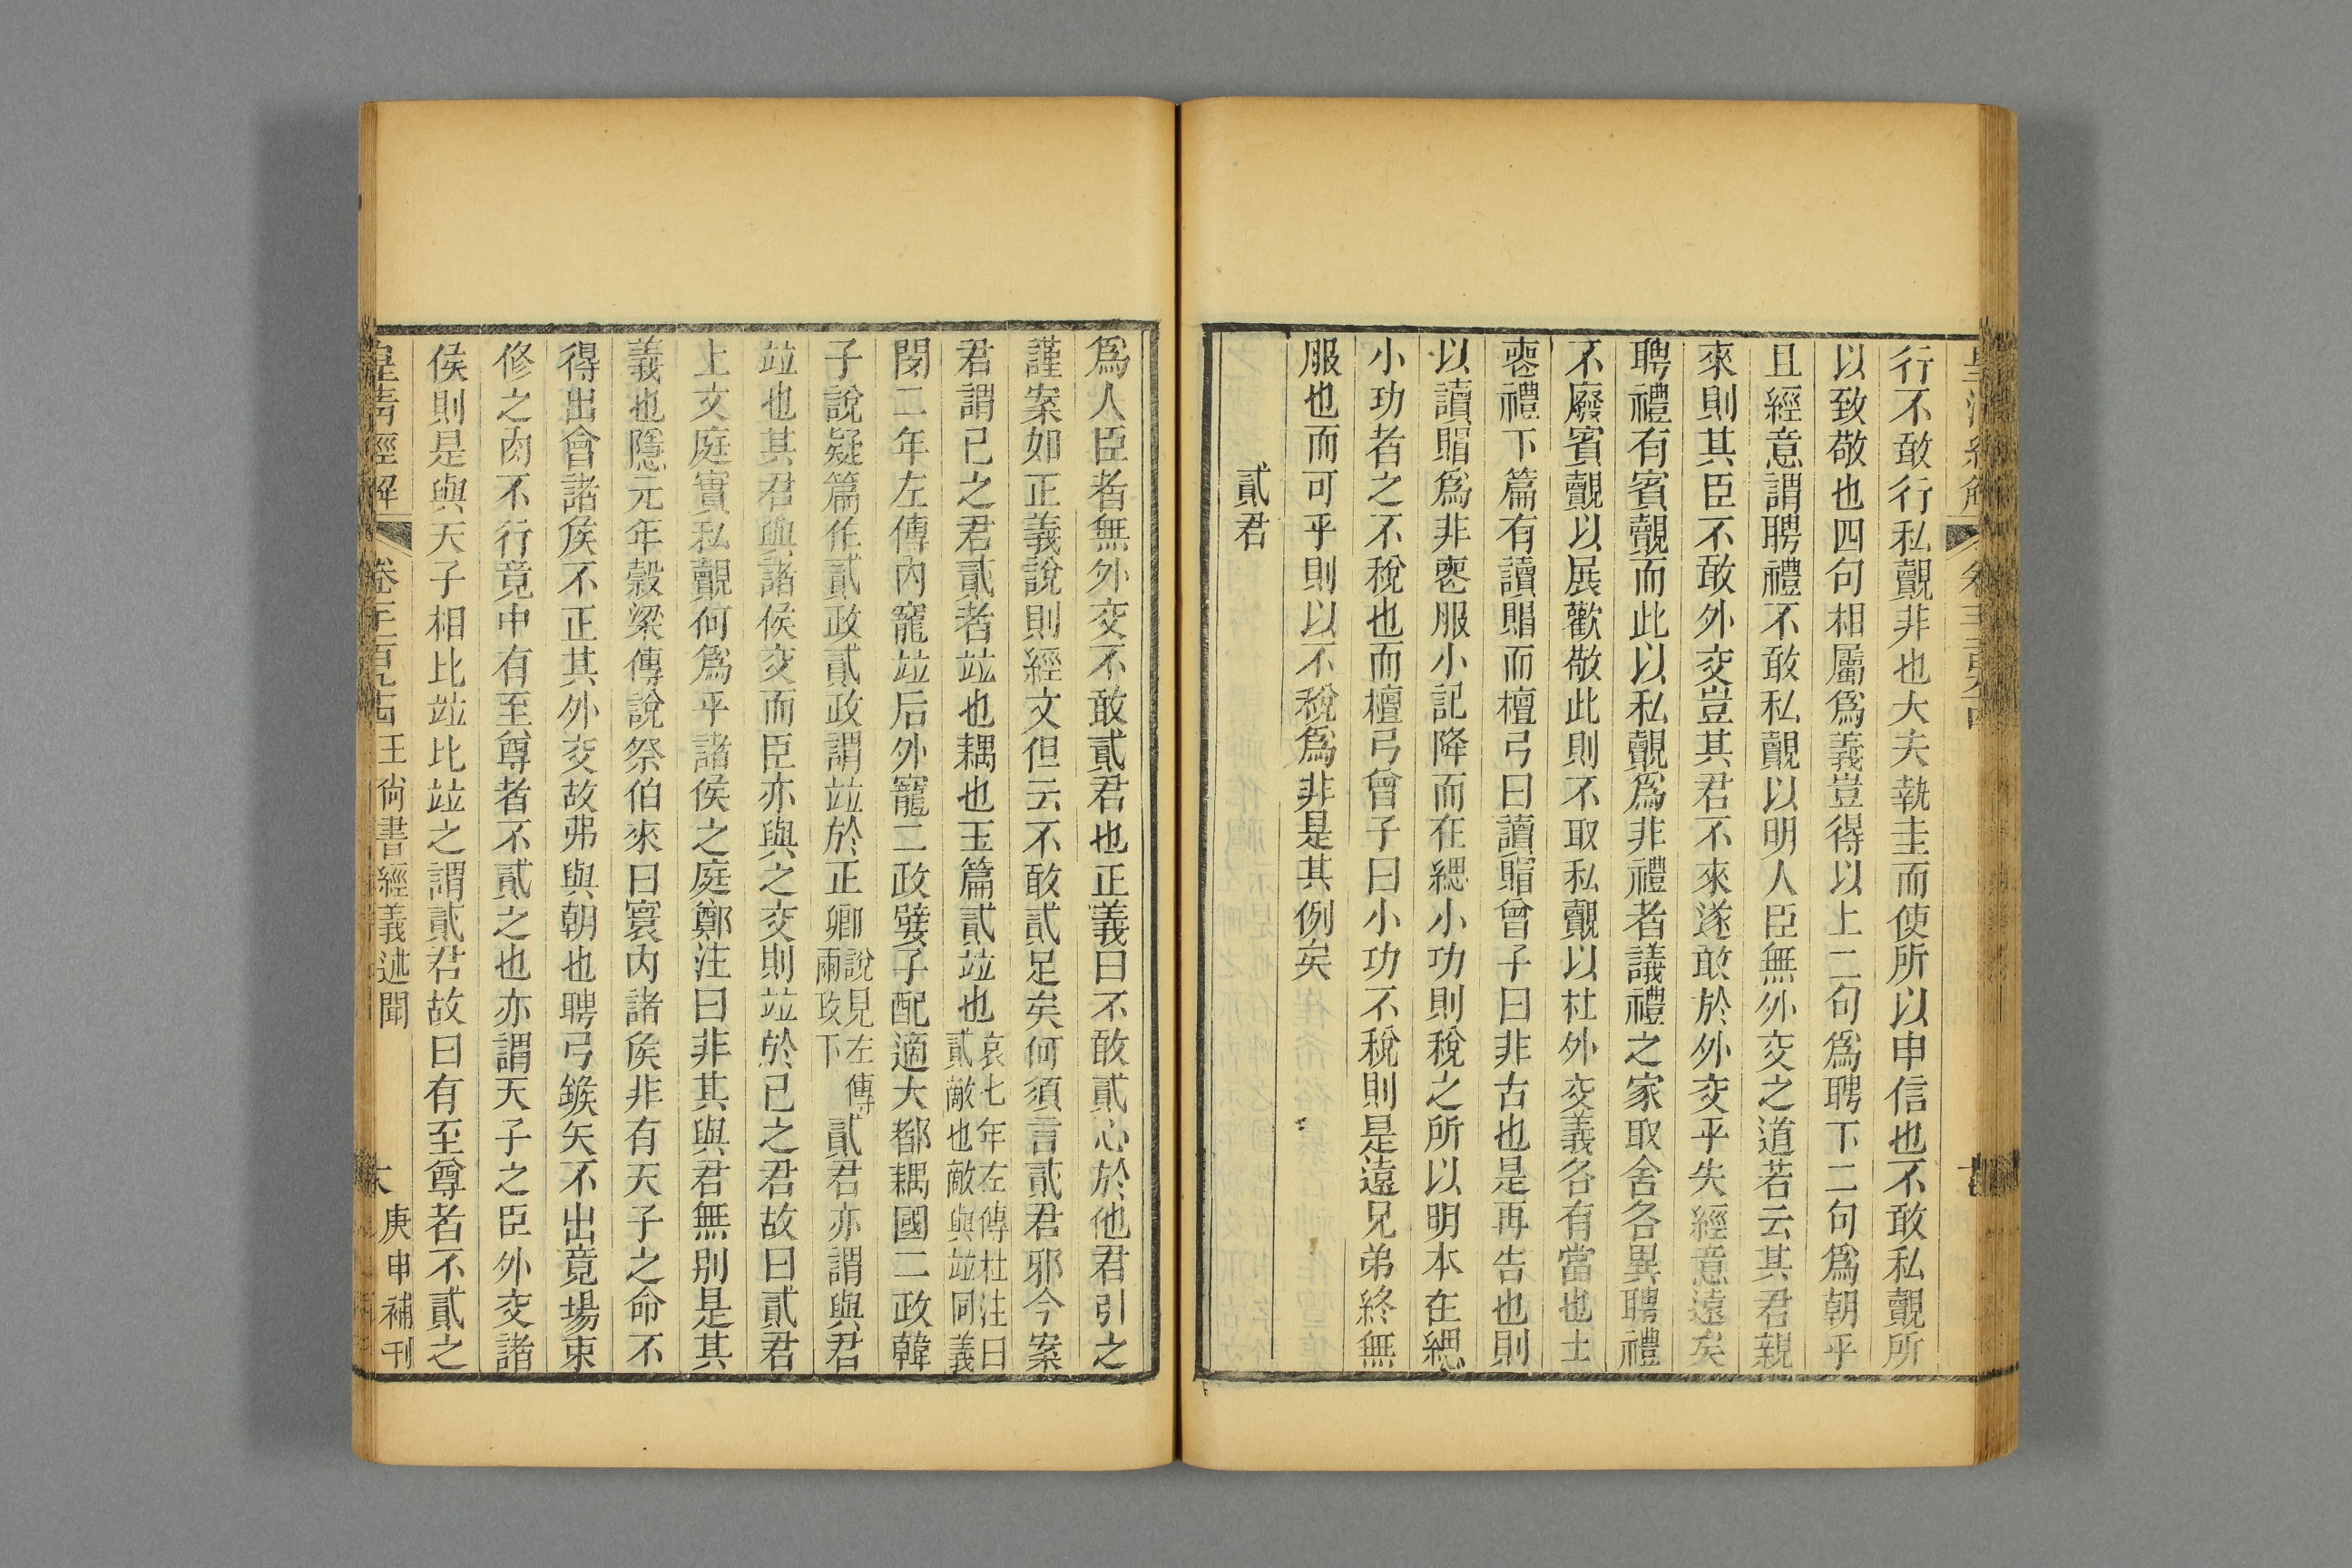 行不敢行私覿非也大夫執圭而使所以申信也不敢私覿所
以致敬也四句相屬爲義豈得以上二句爲聘下二句爲朝乎
且經意謂聘禮不敢私覿以明人臣無外交之道若云其君親
來則其臣不敢外交豈其君不來遂敢於外交乎失經意遠矣
聘禮有賓覿而此以私覿爲非禮者議禮之家取舍各異聘禮
不廢賓覿以展歡敬此則不取私覿以杜外交義各有當也士
喪禮下篇有讀賵而檀弓曰讀賵曾子曰非古也是再告也則
以讀賵爲非喪服小記降而在緦小功則稅之所以明本在緦
小功者之不稅也而檀弓曾子曰小功不稅則是遠兄弟終無
服也而可乎則以不稅爲非是其例矣
貳君
爲人臣者無外交不敢貳君也正義曰不敢貳心於他君引之
謹案如正義說則經文但云不敢貳足矣何須言貳君邪今案
君謂己之君貳者竝也耦也玉篇貳竝也哀七年左傳杜注曰貳敵也敵與竝同義
閔二年左傳內寵竝后外寵二政嬖子配適大都耦國二政韓
子說疑篇作貳政貳政謂竝於正卿說見左傳兩政下貳君亦謂與君
竝也其君與諸侯交而臣亦與之交則竝於己之君故曰貳君
上文庭實私覿何爲乎諸侯之庭鄭注曰非其與君無別是其
義也隱元年穀梁傳說祭伯來曰寰內諸侯非有天子之命不
得出會諸侯不正其外交故弗與朝也聘弓鍭矢不出竟場束
修之肉不行竟中有至尊者不貳之也亦謂天子之臣外交諸
侯則是與天子相比竝比竝之謂貳君故曰有至尊者不貳之
皇清經解 卷 王尙書經義述聞 庚申補刊